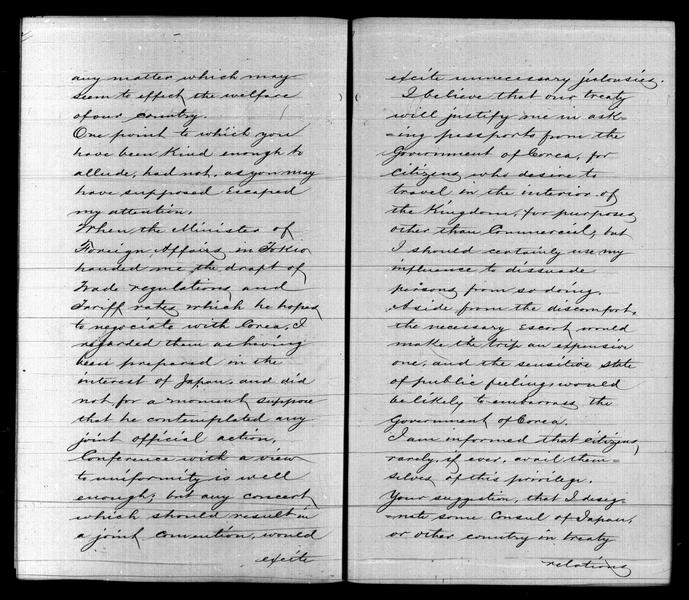 any matter which may
seem to effect the welfare
of our country.
One point to which you
have been kind enough to
allude, had not, as you may
have supposed Escaped
my attention.
When the Minister of
Foreign Affairs in Tokio
handed me the draft of
Trade regulations and
Tariff rates which he hoped
to negociate with Corea, I
regarded them as having
been prepared in the
interest of Japan, and did
not for a moment suppose
that he contemplated any
joint official action.
Conference with a view
to uniformity is well
enough; but any concert
which should result in
a joint convention, would
excite
excite unnecessary jealousies.
I believe that our treaty
will justify me in ask-
=ing passports from the
Government of Corea, for
citizens who desire to
travel in the interior of
the Kingdom, for purposes
other than Commercial; but
I should certainly use my
influence to dissuade
persons from so doing.
Aside from the discomfort,
the necessary Escort would
make the trip an expensive
one, and the sensitive state
of public feeling would
be likely to embarrass the
Government of Corea.
I am informed that citizens
rarely, if ever, avail them=
selves of this privilege.
Your suggestion, that I desig-
=nate some Consul of Japan,
or other country in treaty
relations